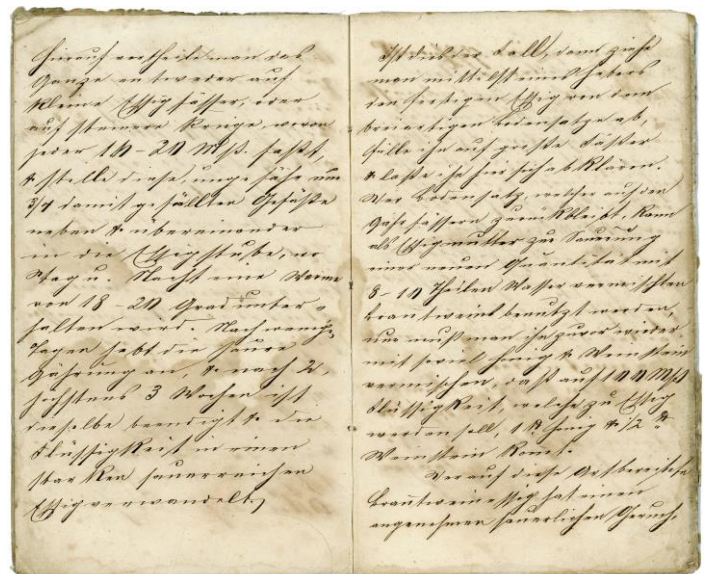 Hierauf vertheile man das
Ganze entweder auf
kleine Essigfässer, oder
auf steinere Krüge, wovon
jeder 10 – 20 Mß. faßt,
& stelle diese, ungefähr um
3/4 damit gefüllten Gefäße
neben & übereinander
in die Essigstube, wo
Tag u. Nacht eine Wärme
von 18 – 20 Grad unter-
halten wird. Nach wenig
Tagen hebt die saure
Gährung an, & nach 2,
höchstens 3 Wochen ist
dieselbe beendigt & die
Flüssigkeit in einen
starken sauerreichen
Essig verwandelt,
Ist dies der Fall, dann ziehe
man mittelst eines Hebers
den fertigen Essig von dem
breiartigen Bodensatze ab,
fülle ihn auf größte Fäßer
& laße ihn für sich abklären.
Der Bodensatz, welcher auf den
Gährfässern zurückbleibt, kann
als Essigmutter zur Säuerung
einer neuen Quantität mit
8 – 10 Theilen Wasser vermischten
Brantweins benutzt werden,
nur muß man ihn zuvor wieder
mit soviel Honig & Weinstein
vermischen, daß auf 100 Mß
Flüssigkeit, welche zu Essig
werden soll, 1 ℔ Honig & 1/2 ℔
Weinstein komt.
Der auf diese Art bereitete
Brantweinessig hat einen
angenehmen säuerlichen Geruch,